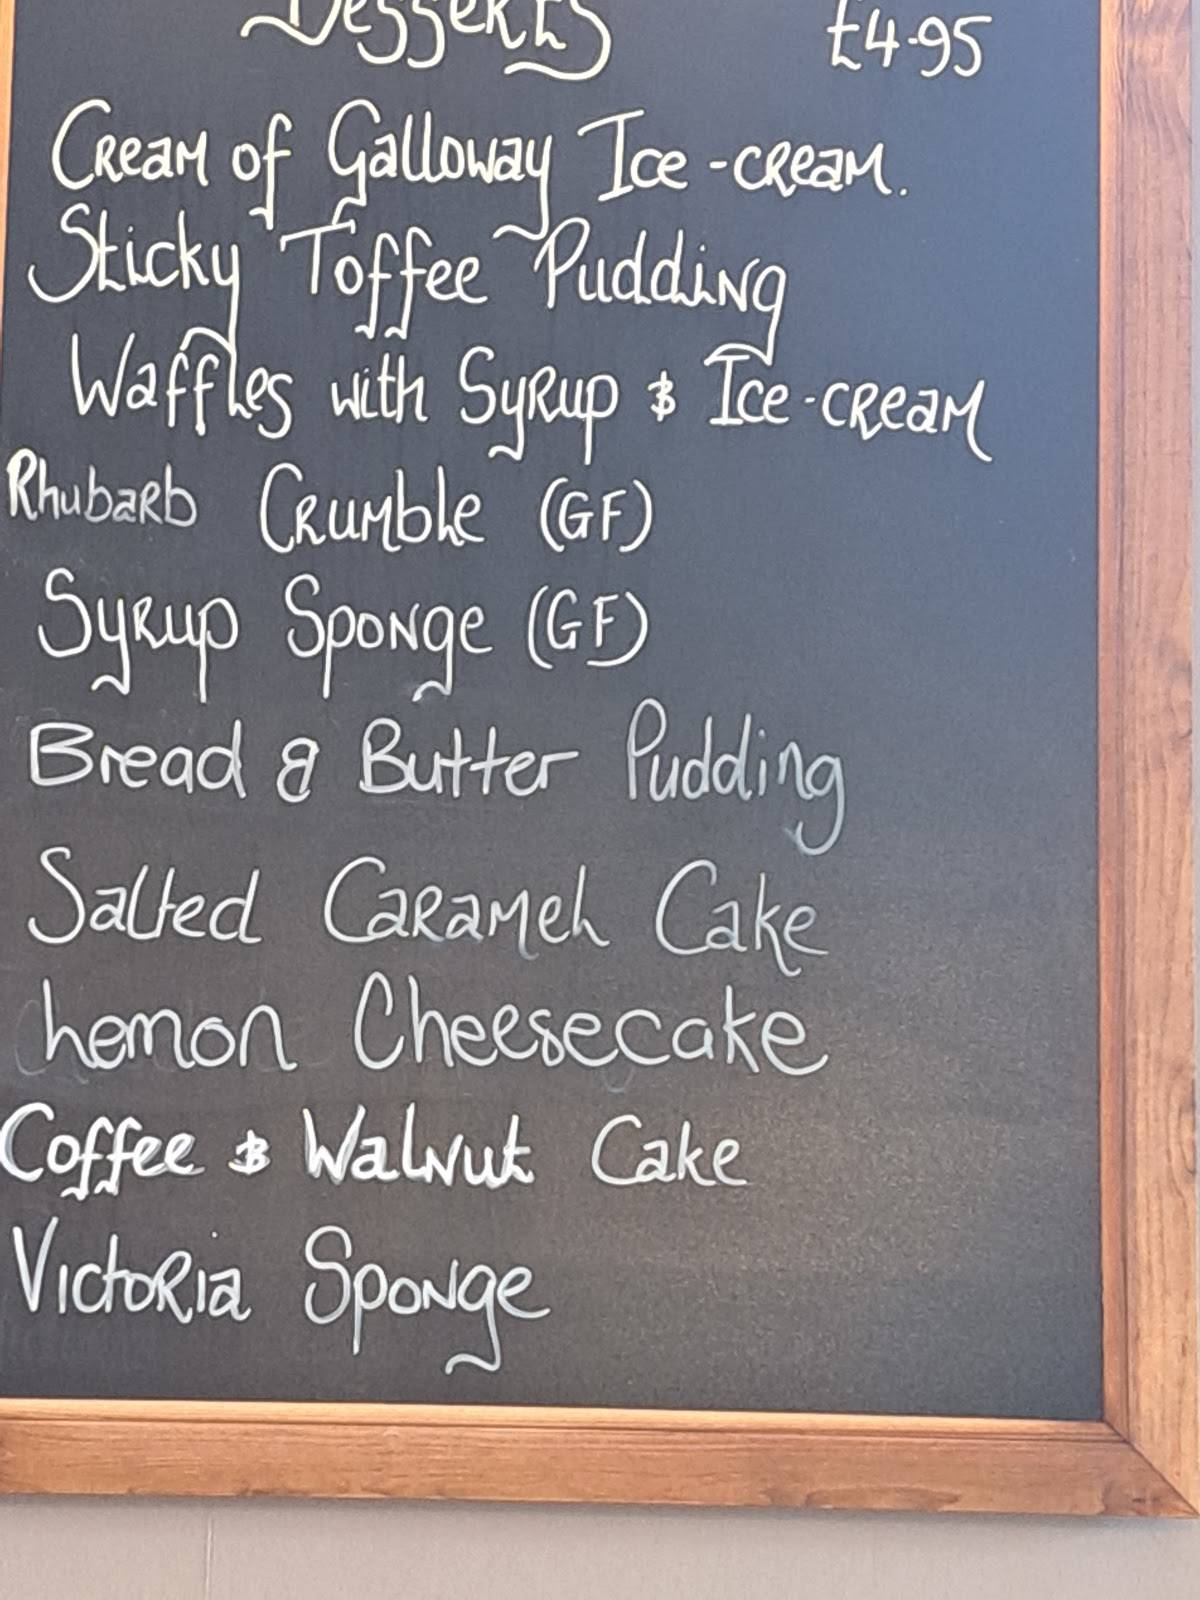 Desserts £4.95
Cream of Galloway Ice-cream.
Sticky Toffee Pudding
Waffles with Syrup & Ice-cream
Rhubarb Crumble (GF)
Syrup Sponge (GF)
Bread & Butter Pudding
Salted Caramel Cake
Lemon Cheesecake
Coffee & Walnut Cake
Victoria Sponge